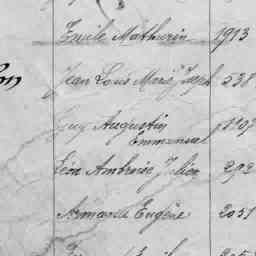 Emile Mathurin 1913
Jean Louis Marie Joseph 538
Guy Augustin 1107
Emmanuel
Léon Ambroise Julien 292
Armand Eugène 2051